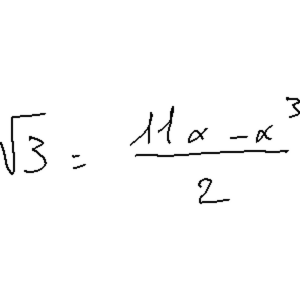 √3 = (11α - α³)/2